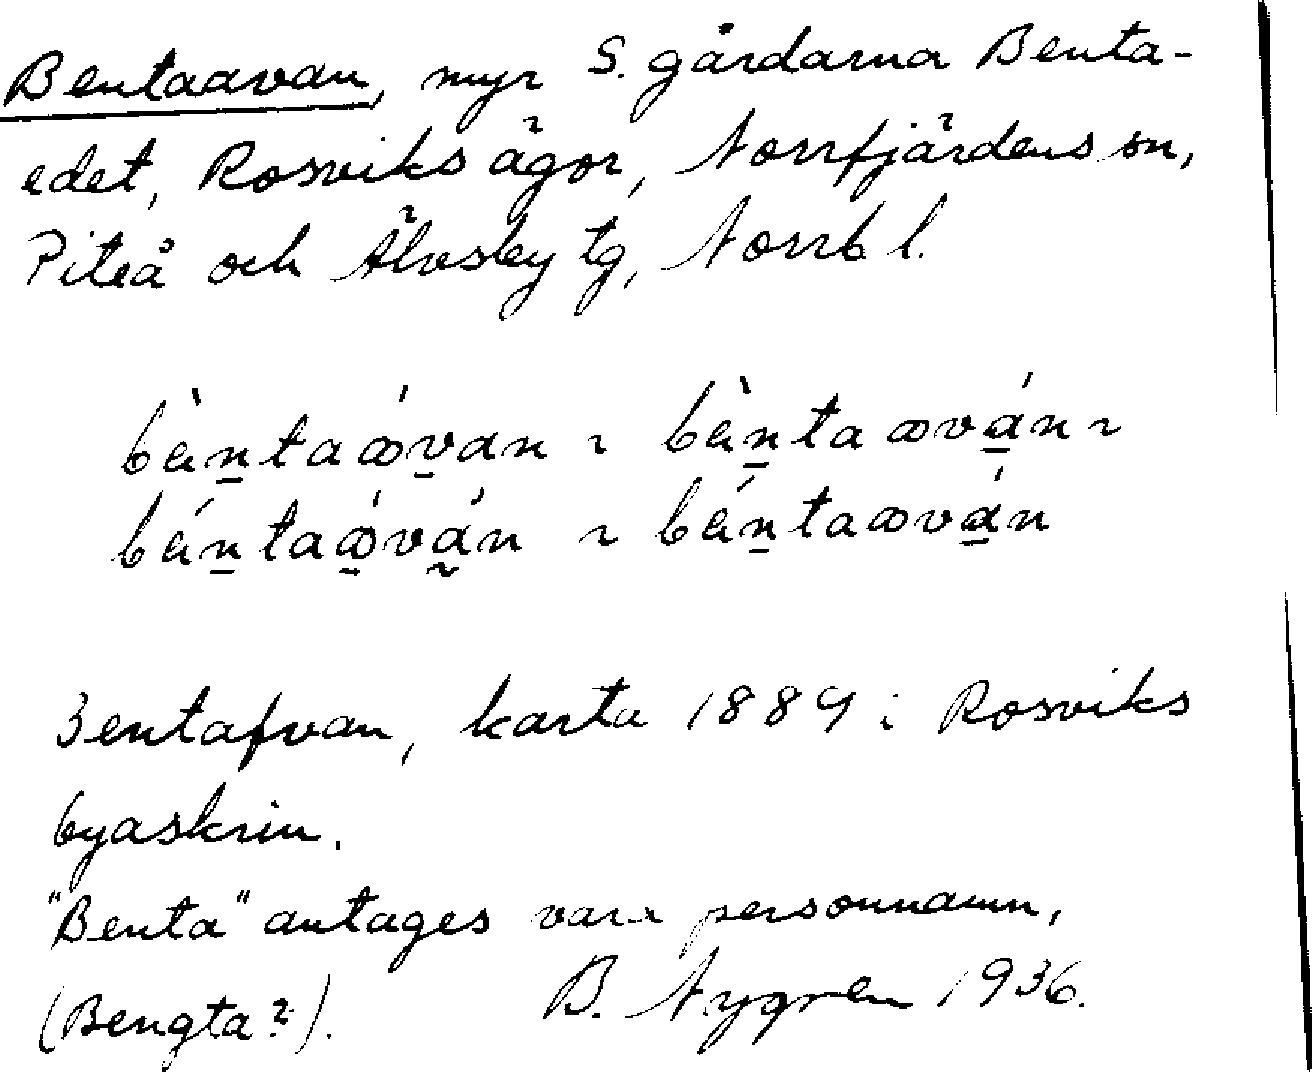 Bentaavan, myr S. gårdarna Benta-
edet, Rosviks ägor, Norrfjärdens sn,
Piteå och Älvsby tg, Norrb l.
bèntaåvan ~ bèntaåván ~
béntaåván ~ béntaåván
Bentafvan, karta 1889 i Rosviks
byaskrin.
"Benta" antages vara personnamn,
(Bengta?). B. Nygren 1936.